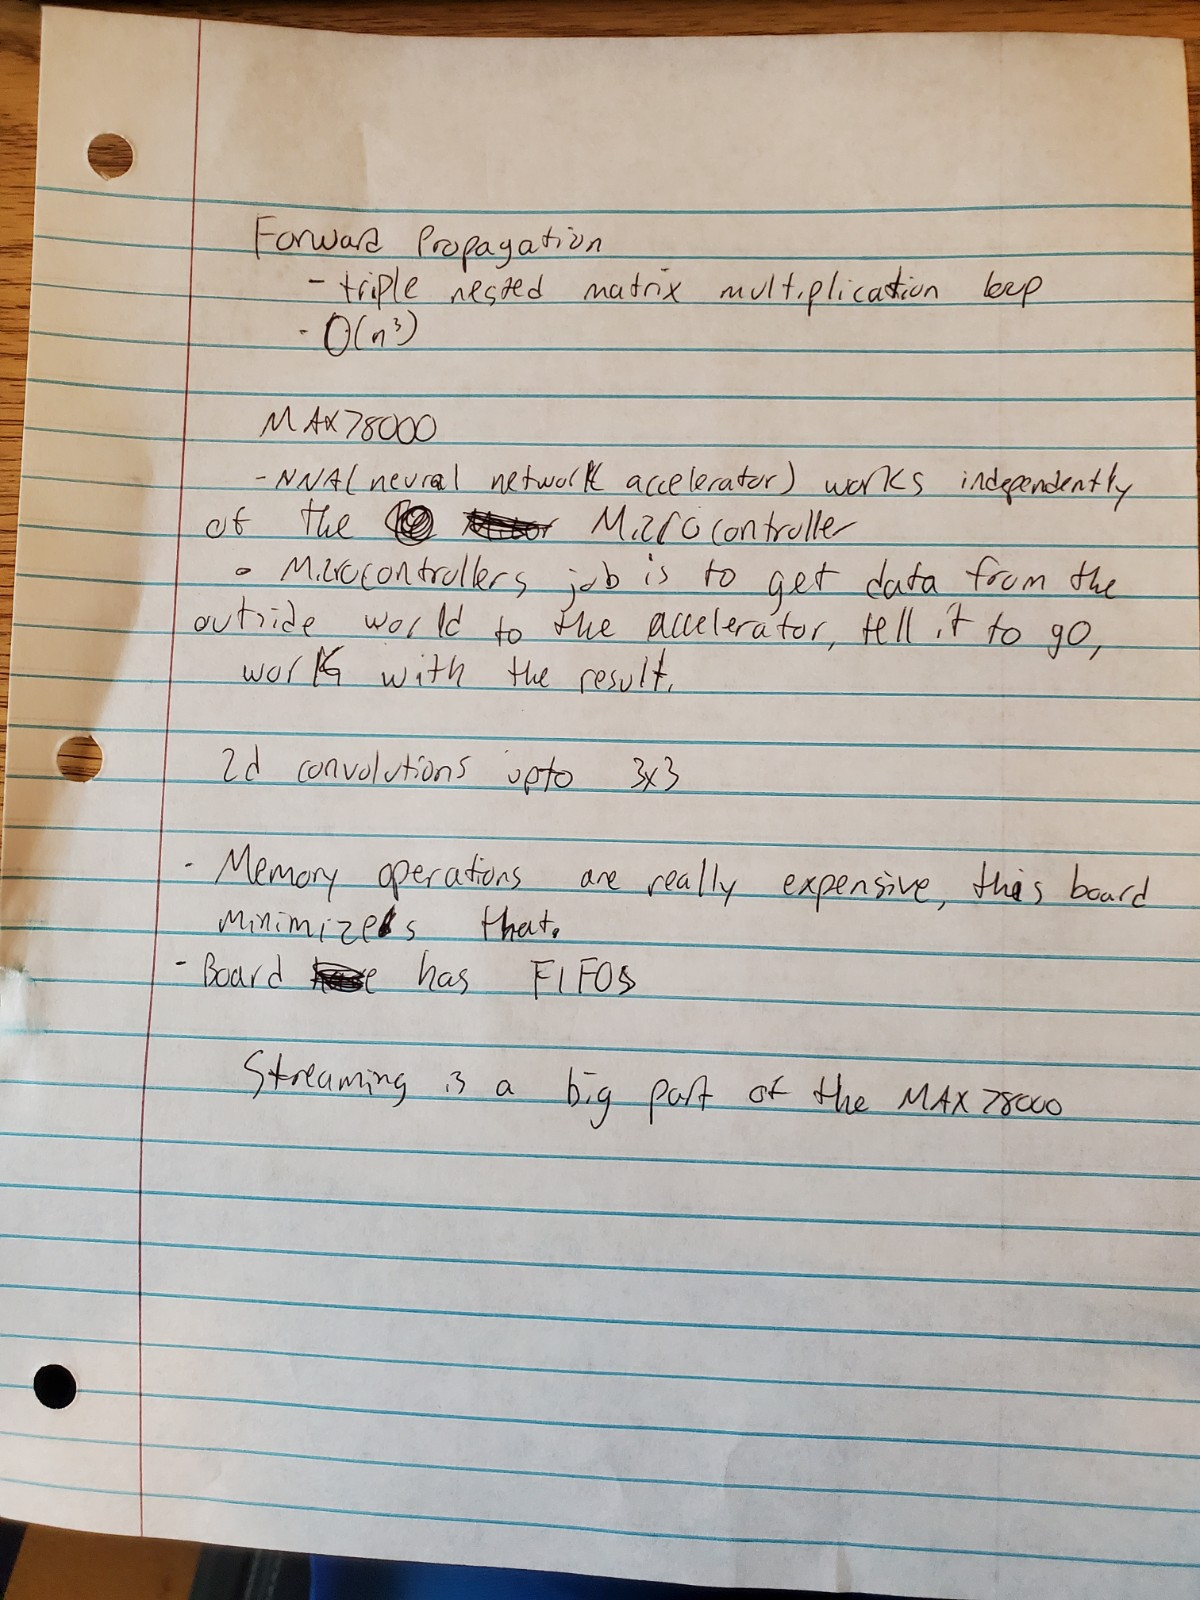 Forward Propagation
- triple nested matrix multiplication loop
- O(n³)
MAX78000
- NNA (neural network accelerator) works independently
of the Microcontroller
• Microcontrollers job is to get data from the
outside world to the accelerator, tell it to go,
work with the result.
2d convolutions upto 3x3
- Memory operations are really expensive, this board
minimizes that.
- Board has FIFOs
Streaming is a big part of the MAX78000